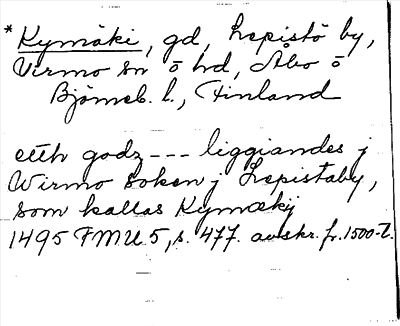 *Kymäki, gd, Lepistö by,
Virmo sn ö hd, Åbo ö
Björneb. l., Finland
etth godz --- liggiandes j
Wirmo soken j Lepistaby,
som kallas Kymækij
1495 FMU 5, s. 477. avskr. fr. 1500-t.